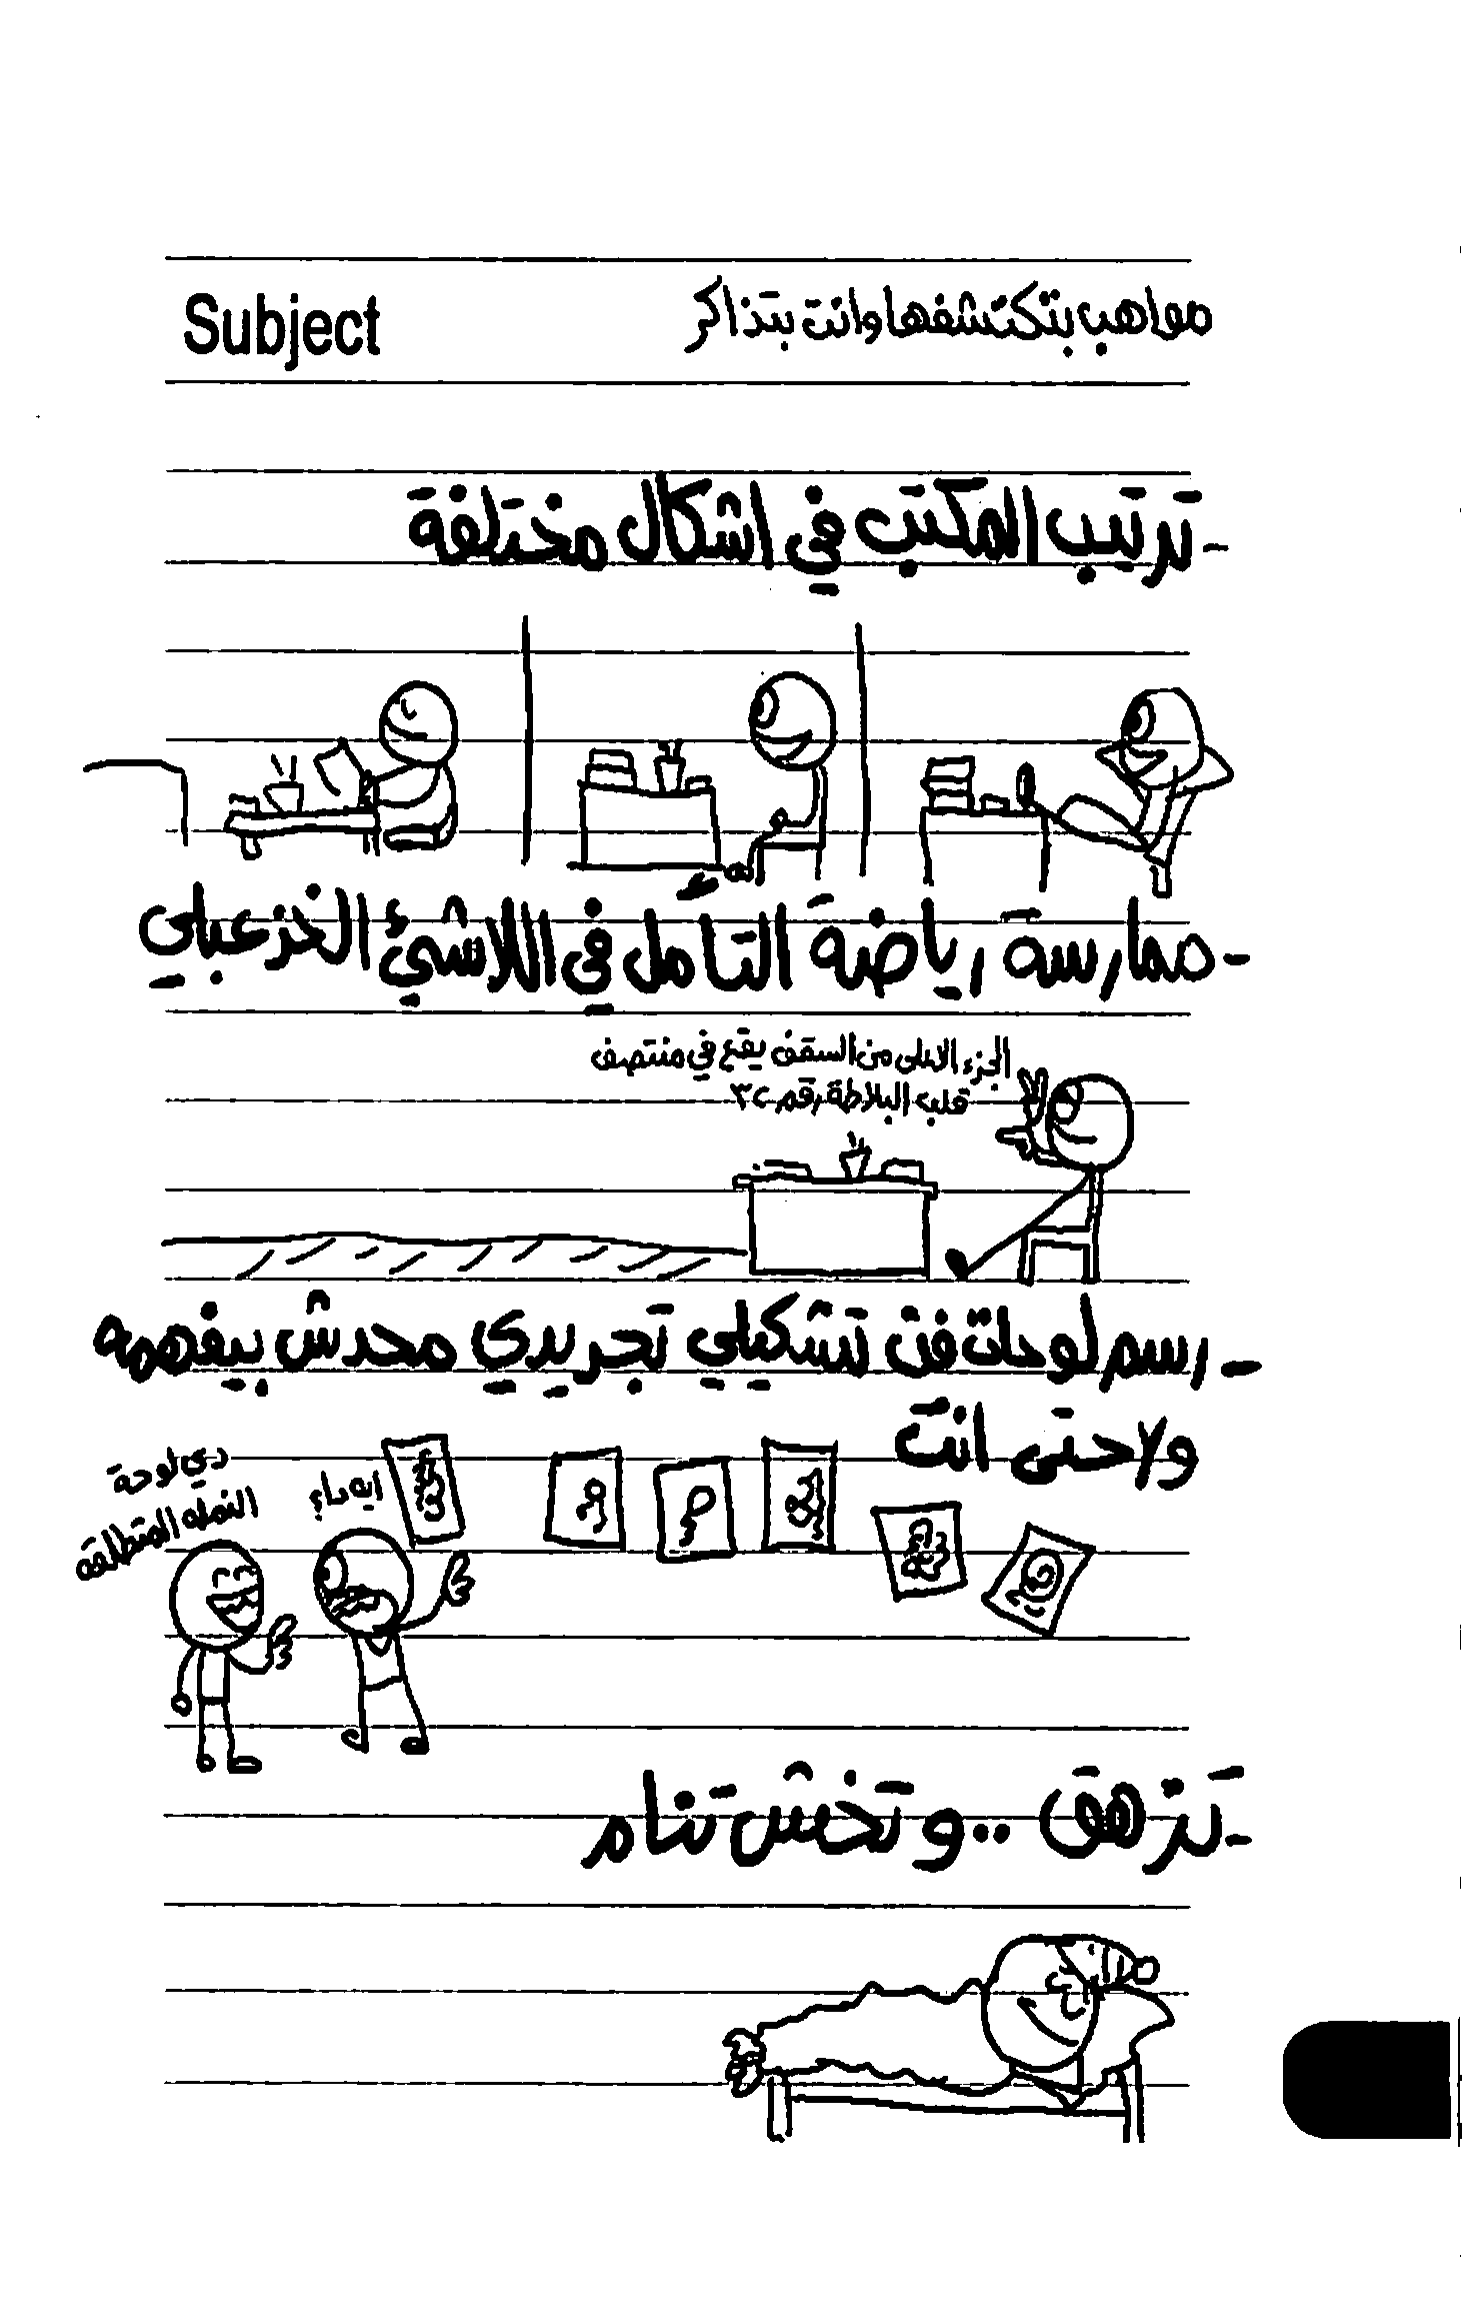 Subject
مواهب بتكتشفها وانت بتذاكر
- ترتيب المكتب في اشكال مختلفة
- ممارسة رياضة التأمل في اللاشئ الخزعبلي
الجزء الاعلى من السقف يقع في منتصف
قلب البلاطة رقم ٣٢
- رسم لوحات فن تشكيلي تجريدي محدش بيفهمه
ولا حتى انت
ايه داء؟
دي لوحة
النمله المتطلقه
- تزهق .. وتخش تنام